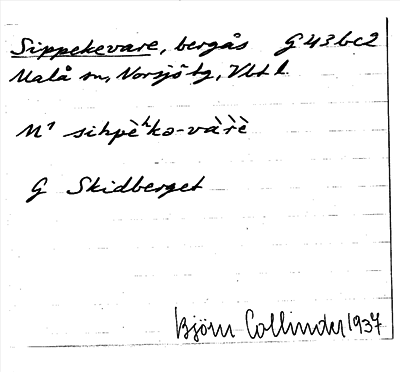 Sippekevare, bergås G43bc2
Malå sn, Norsjö tg, Vbt l.
M¹ sihpèʰkə-và̀rè
G Skidberget
Björn Collinder 1937